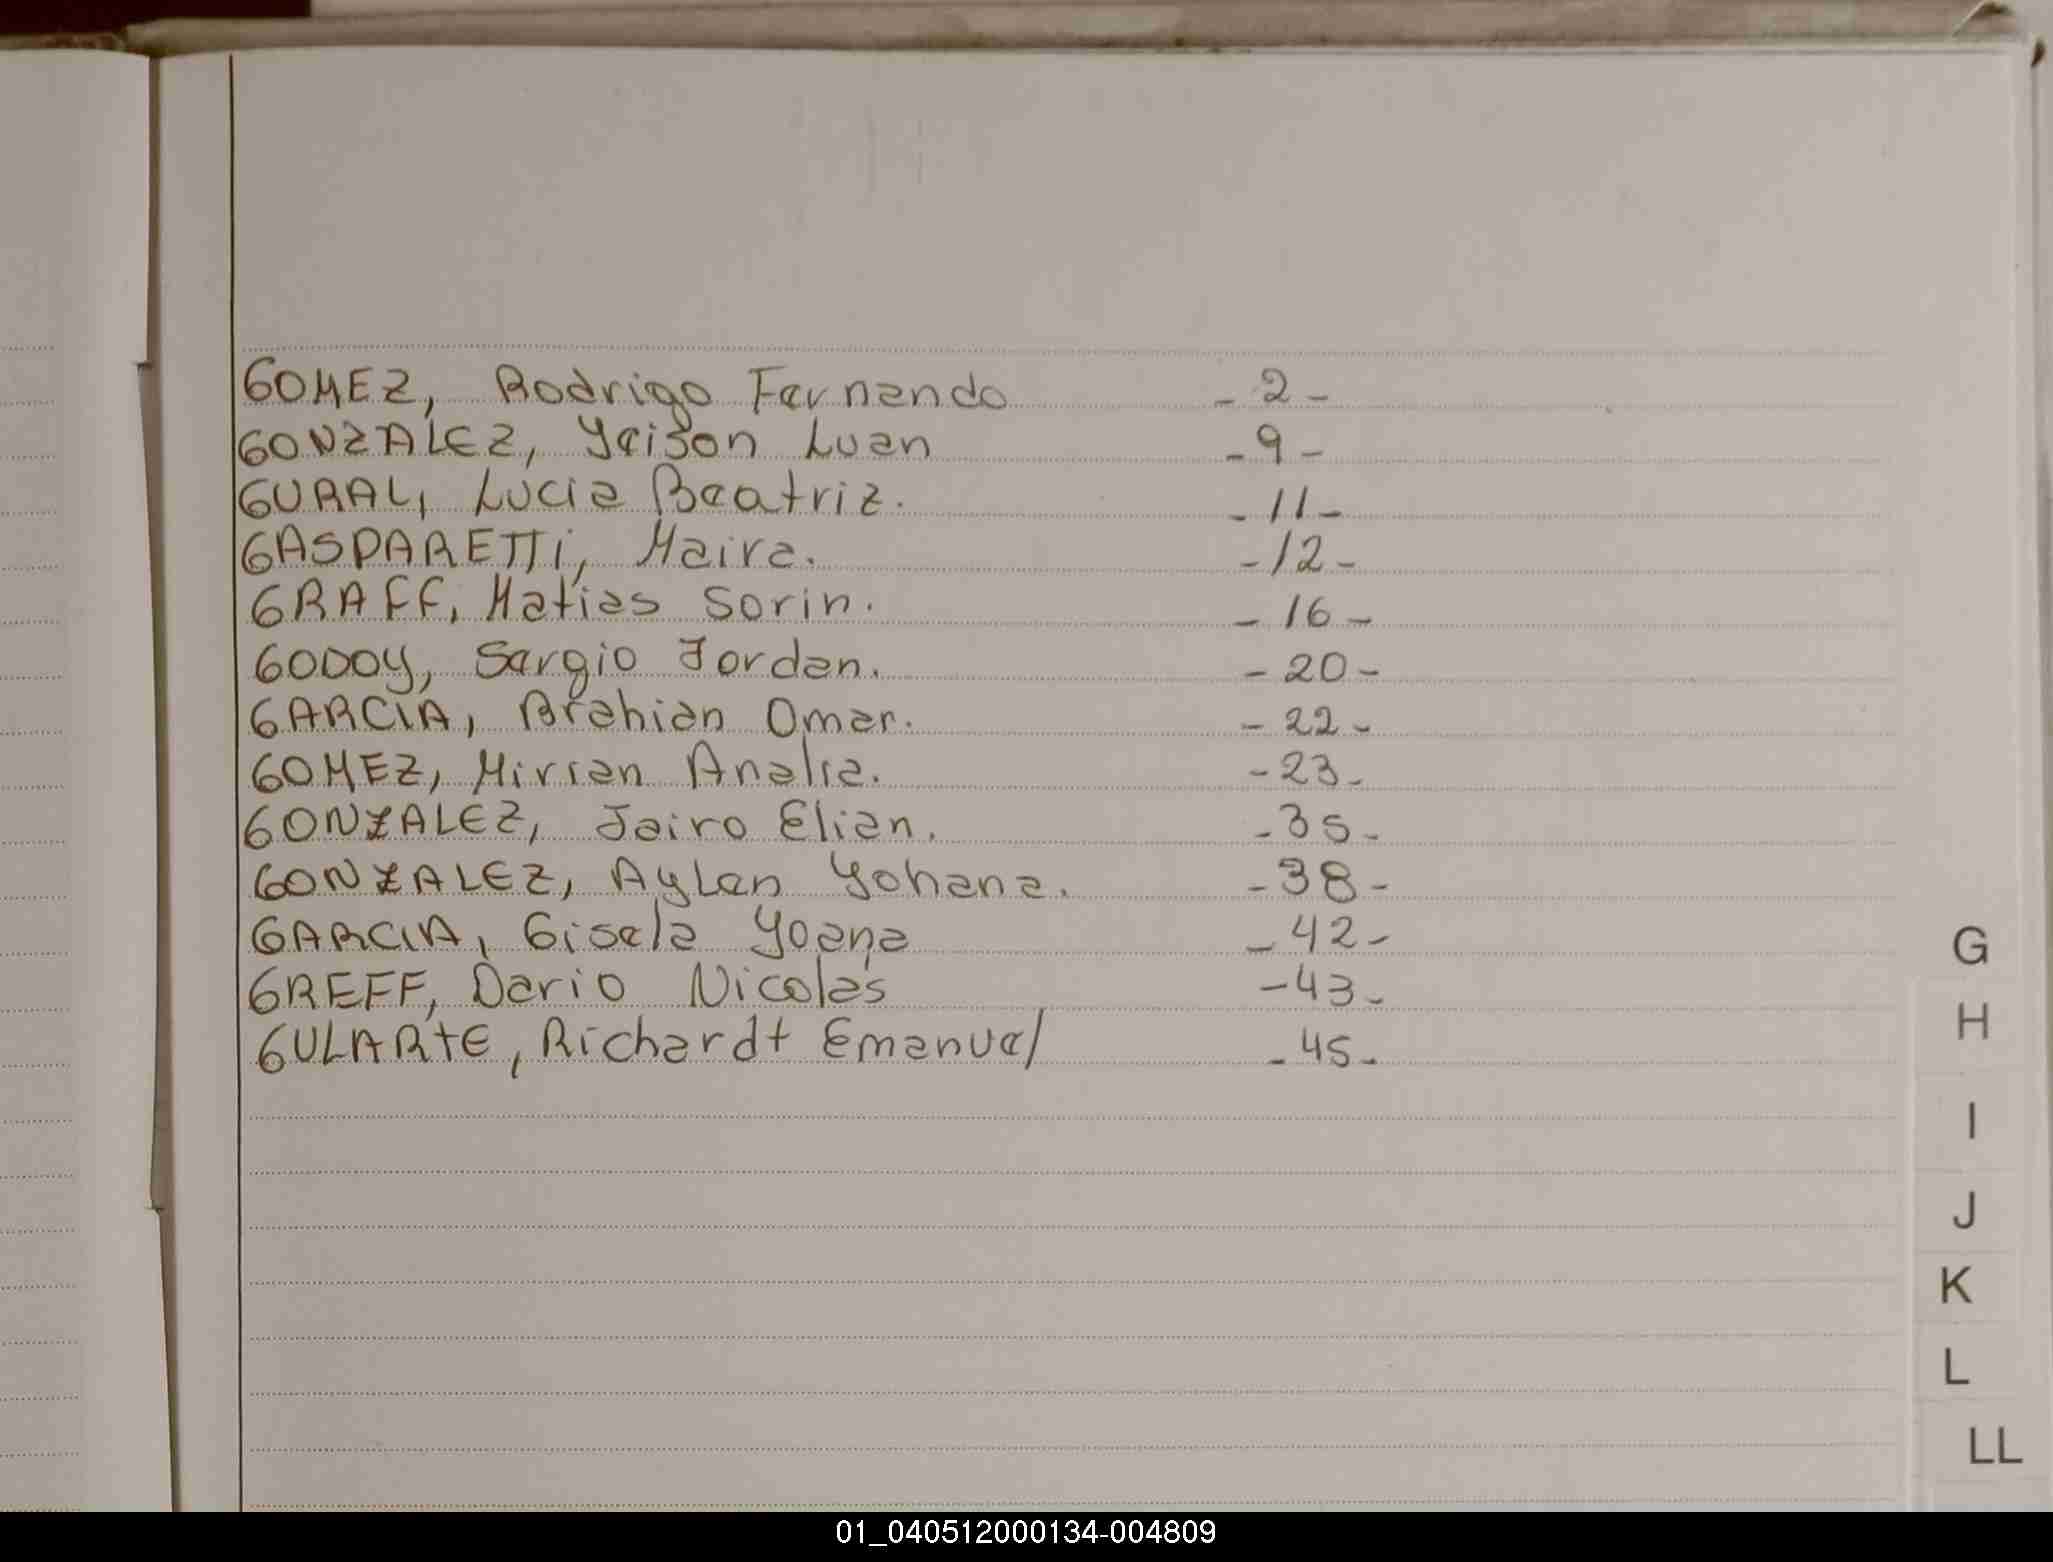 GOMEZ, Rodrigo Fernando - 2 -
GONZALEZ, Yeison Luan - 9 -
GURAL, Lucia Beatriz. - 11 -
GASPARETTi, Maira. - 12 -
GRAFF, Matias Sorin. - 16 -
GODOY, Sergio Jordan. - 20 -
GARCIA, Brahian Omar. - 22 -
GOMEZ, Mirian Analia. - 23 -
GONZALEZ, Jairo Elian. - 35 -
GONZALEZ, Aylen Yohana. - 38 -
GARCIA, Gisela Yoana - 42 -
GREFF, Dario Nicolas - 43 -
GULARTE, Richardt Emanuel - 45 -
G
H
I
J
K
L
LL
01_040512000134-004809